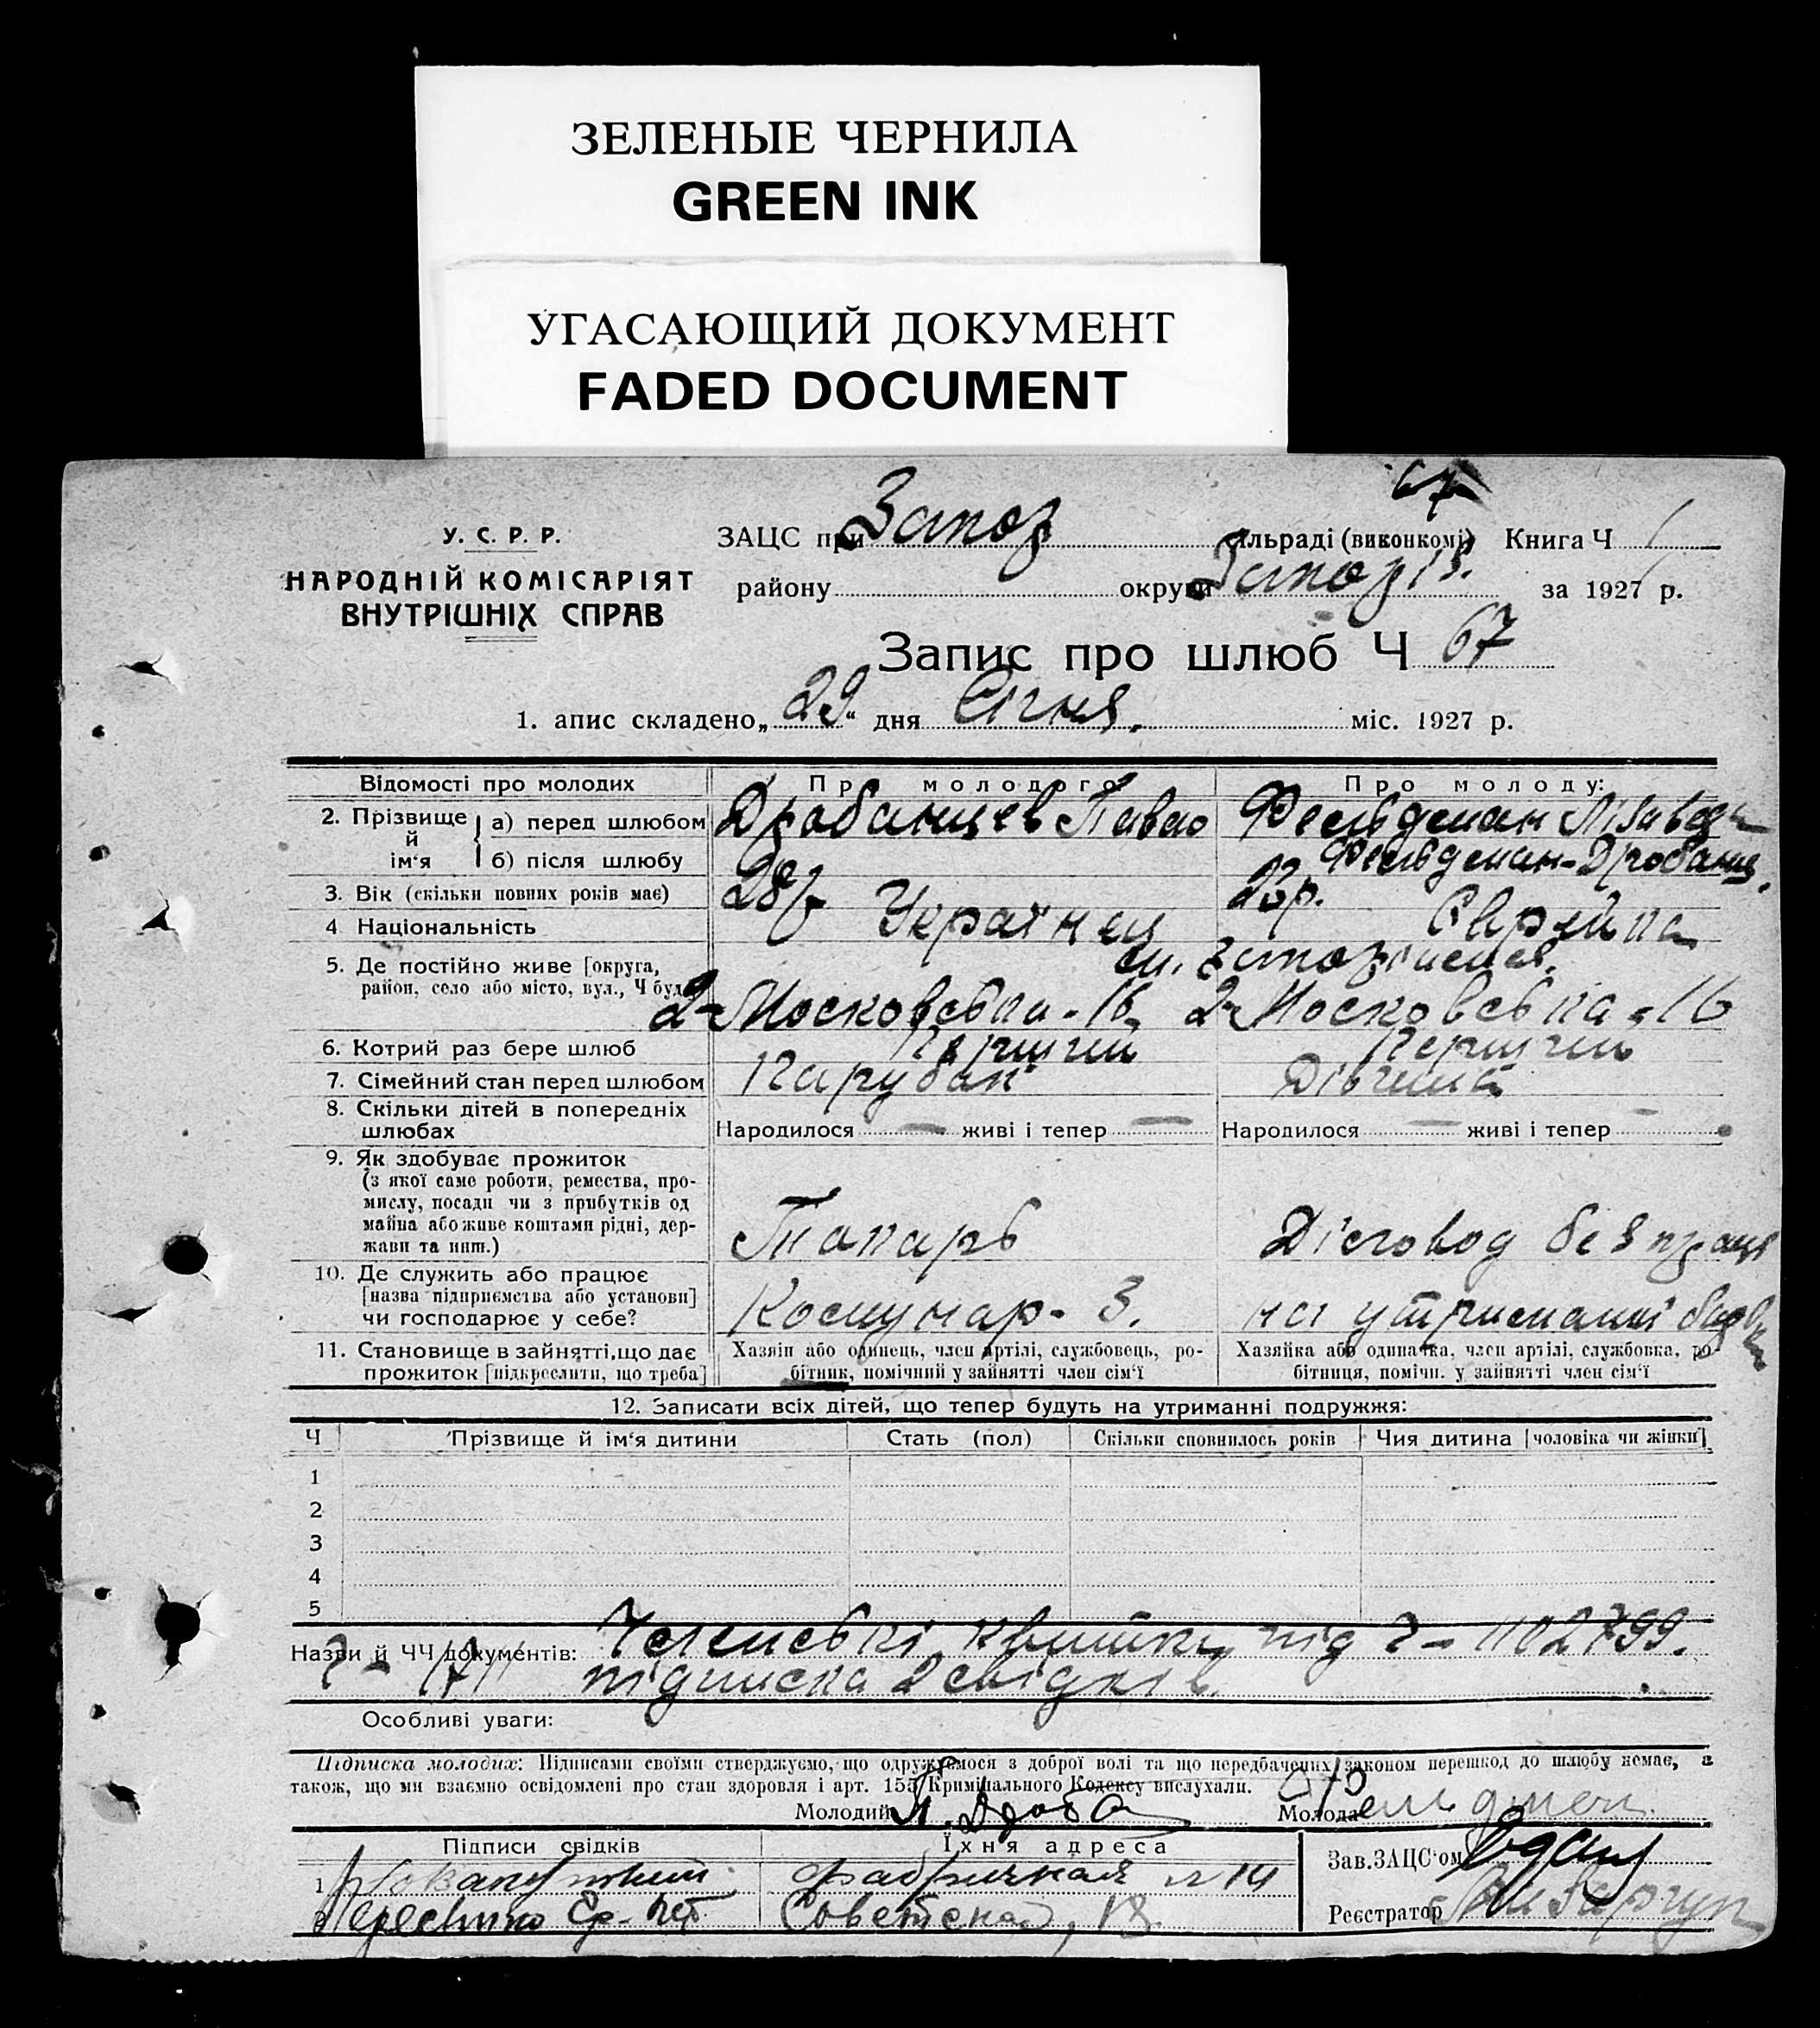 ЗЕЛЕНЫЕ ЧЕРНИЛА
GREEN INK
УГАСАЮЩИЙ ДОКУМЕНТ
FADED DOCUMENT
67
У. С. Р. Р.
НАРОДНІЙ КОМІСАРІЯТ
ВНУТРІШНІХ СПРАВ
ЗАЦС при Запоз ільраді (виконкомі) Книга Ч 1
району округи Запоріз. за 1927 р.
Запис про шлюб Ч 67
1. апис складено „29“ дня Січня міс. 1927 р.
Відомості про молодих
Про молодого:
Про молоду:
2. Прізвище й ім‘я
а) перед шлюбом Дробанцев Павло Фельдман Лізавета
б) після шлюбу Фельдман-Дробанц.
3. Вік (скільки повних років має) 28 р. 23 р.
4 Національність Українец Єврейка
5. Де постійно живе [округа, район, село або місто, вул., Ч буд.]
м. Запоріжжя
2-Московська-16 2-Московська-16
6. Котрий раз бере шлюб Перший Перший
7. Сімейний стан перед шлюбом Парубак Дівчина
8. Скільки дітей в попередніх шлюбах
Народилося — живі і тепер — Народилося — живі і тепер —
9. Як здобуває прожиток
(з якої саме роботи, ремества, про-
мислу, посади чи з прибутків од
майна або живе коштами рідні, дер-
жави та инш.)
Токарь Діловод без праці
10. Де служить або працює
[назва підприємства або установи]
чи господарює у себе?
Комунар-З. на утриманні батьків
11. Становище в зайнятті, що дає
прожиток [підкреслити, що треба]
Хазяін або одинець, член артілі, службовець, ро-
бітник, помічний у зайнятті член сім‘ї
Хазяйка або одиначка, член артілі, службовка, ро-
бітниця, помічн. у зайнятті член сім‘ї
12. Записати всіх дітей, що тепер будуть на утриманні подружжя:
Ч Прізвище й ім‘я дитини Стать (пол) Скільки сповнилось років Чия дитина [чоловіка чи жінки]
1
2
3
4
5
Назви й ЧЧ документів: Членські квитки під Ч- 1102799.
підписка 2 свідків
Особливі уваги:
Підписка молодих: Підписами своїми стверджуємо, що одружуємося з доброї волі та що передбачених законом перешкод до шлюбу немає, а
також, що ми взаємно освідомлені про стан здоровля і арт. 155 Кримінального Кодексу вислухали.
Молодий П. Дроба Молода Фельдман
Підписи свідків
Їхня адреса
1 Фабричная № 14
Советская, 13
Зав. ЗАЦС‘ом
Реєстратор